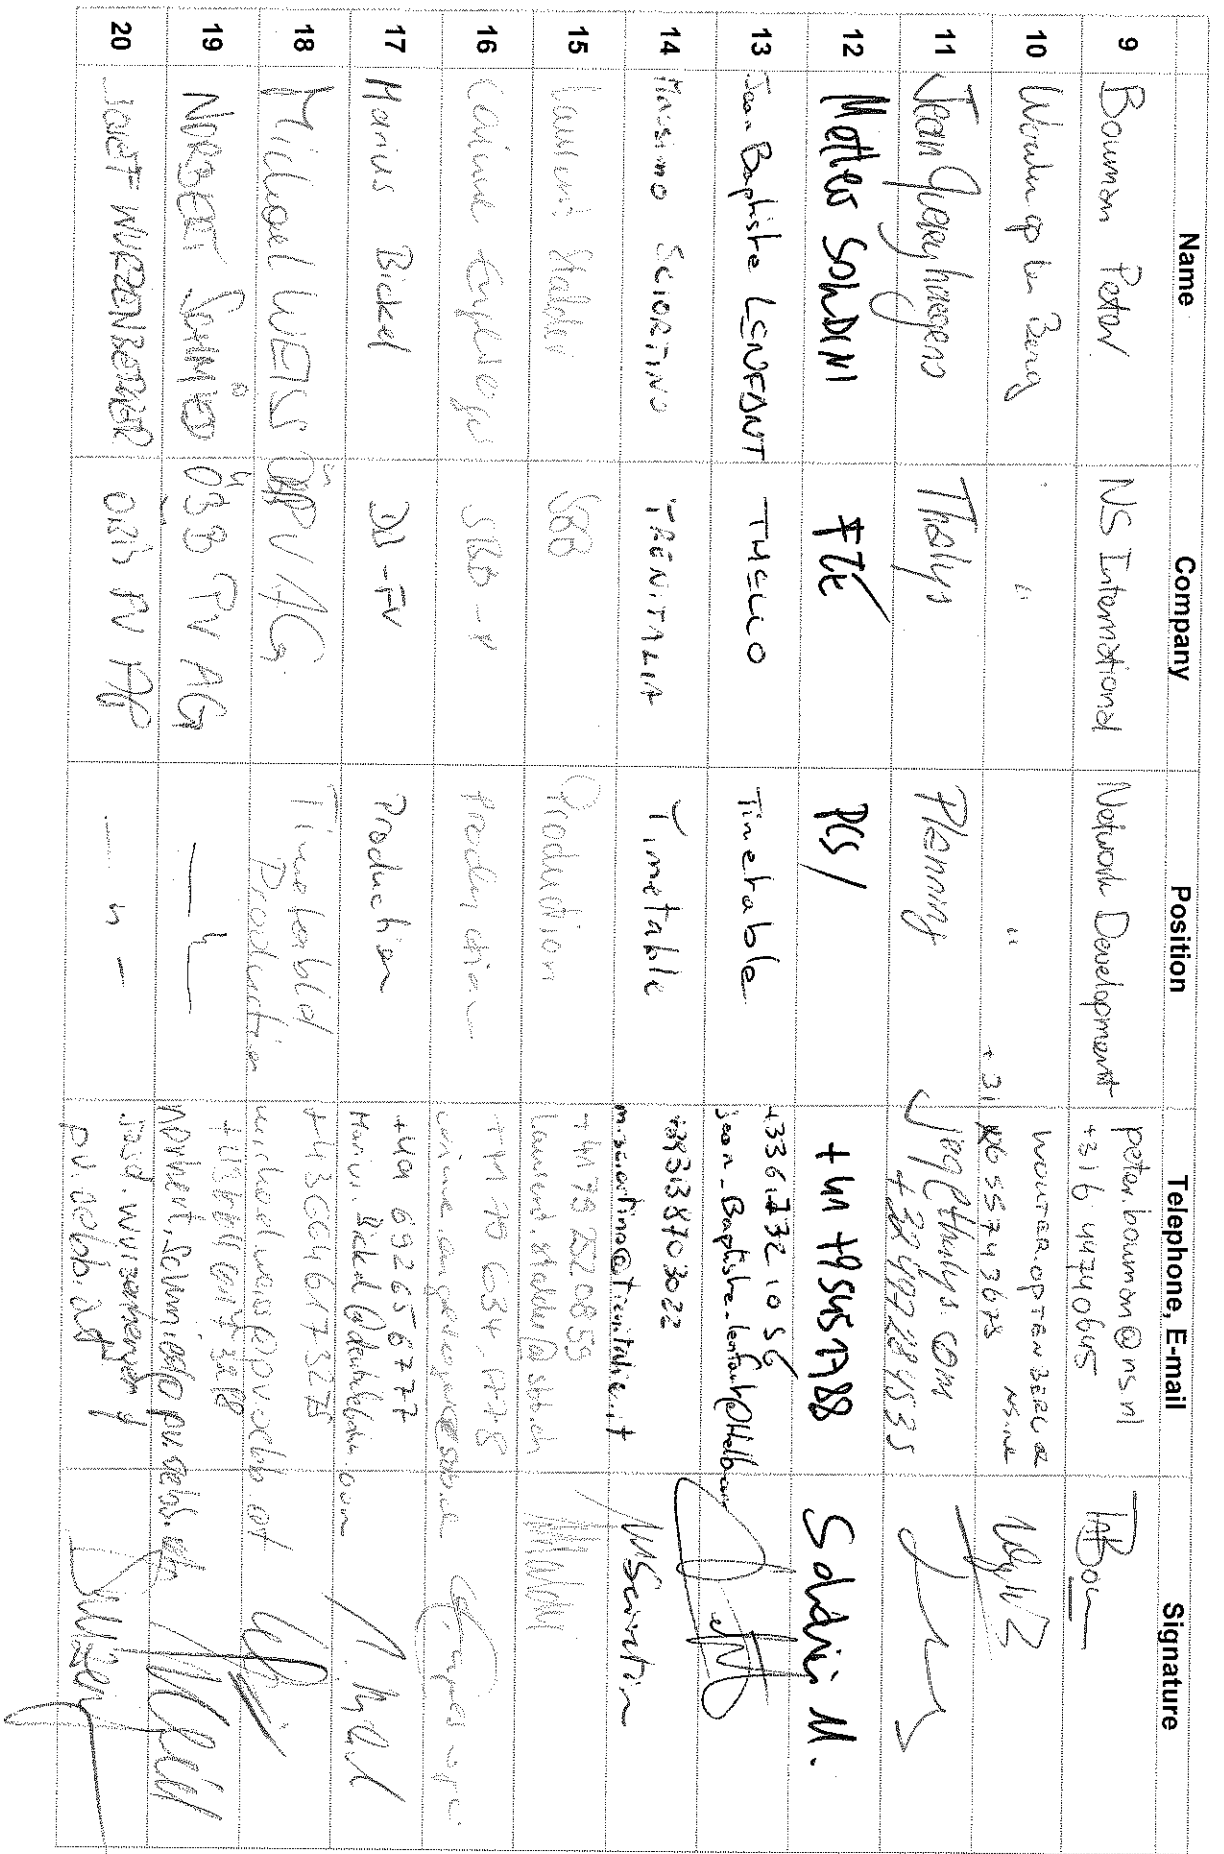 Name Company Position Telephone, E-mail Signature
9 Bouman Peter NS International Network Development peter.bouman@ns.nl
+316 44740645
10 Wouter op ten Berg " " +31
11 Jean Thalys Planning jqq@thalys.com
+32497284535
12 Matteo SOLDINI FTE PCS/ +41 795451788 Soldini M.
13 Jean-Baptiste LENFANT THELLO Timetable +33613321056
14 Massimo SCIORTINO TRENITALIA Timetable +393138703022
m.sciortino@trenitalia.it
15 Laurent Stalder SBB Production +41792520859
laurent.stalder@sbb.ch
16 Corinne SBB-P Production
17 Marius Bickel DB-FV Production +49 69265 6777
Marius.Bickel@deutschebahn.com
18 Michael WEISS ÖBB PV AG Timetable
Production +436646173275
michael.weiss@pv.oebb.at
19 NORBERT SCHMIED ÖBB PV AG — " —
norbert.schmied@pv.oebb.at
20 JOSEF WURZENBERGER ÖBB PV AG — " —
josef.wurzenberger@
pv.oebb.at